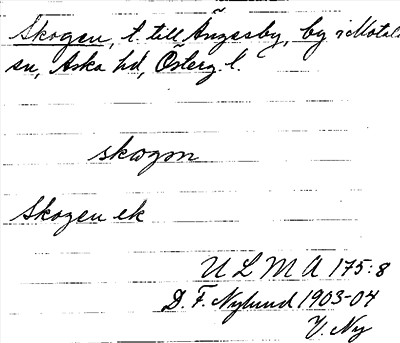 Skogen, t. till Ängesby, by i Motala
sn, Aska hd, Österg. l.
skogen
Skogen ek
U L M A 175:8
D. F. Nylund 1903-04
V. Ny